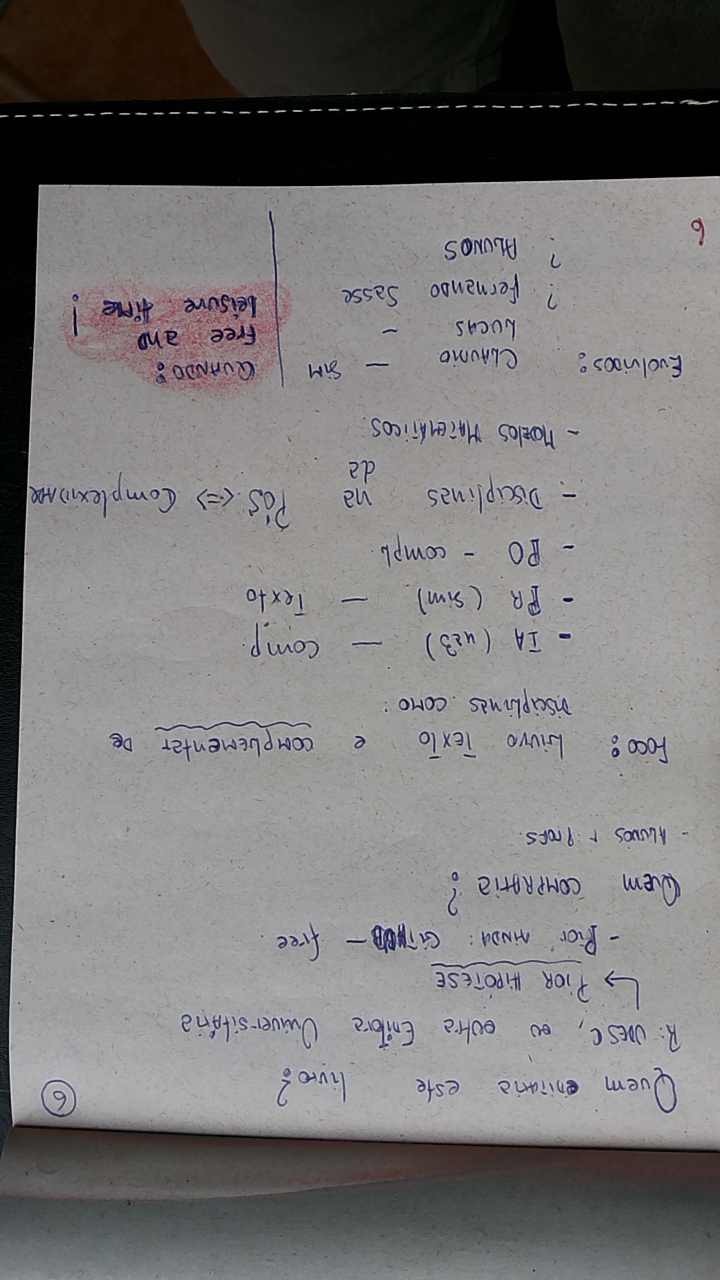 Quem editaria este livro? 6
R: UDESC, ou outra Editora Universitária
↳ PIOR HIPÓTESE
- Pior AINDA: GITHUB - free.
Quem COMPRARIA?
- ALUNOS + PROFS.
FOCO: LIVRO TEXTO e COMPLEMENTAR DE
DISCIPLINAS COMO:
- IA (u23) — COMP.
- PR (sim) — TexTo
- PO - compl.
- DISCIPLINAS na PÓS <=> COMPLEXIDADE
da
- MODELOS MATEMÁTICOS.
Evolvidos: CLAUDIO — SIM
LUCAS -
? Fernando Sasse
? ALUNOS
QUANDO:
Free and
Leisure time!
6